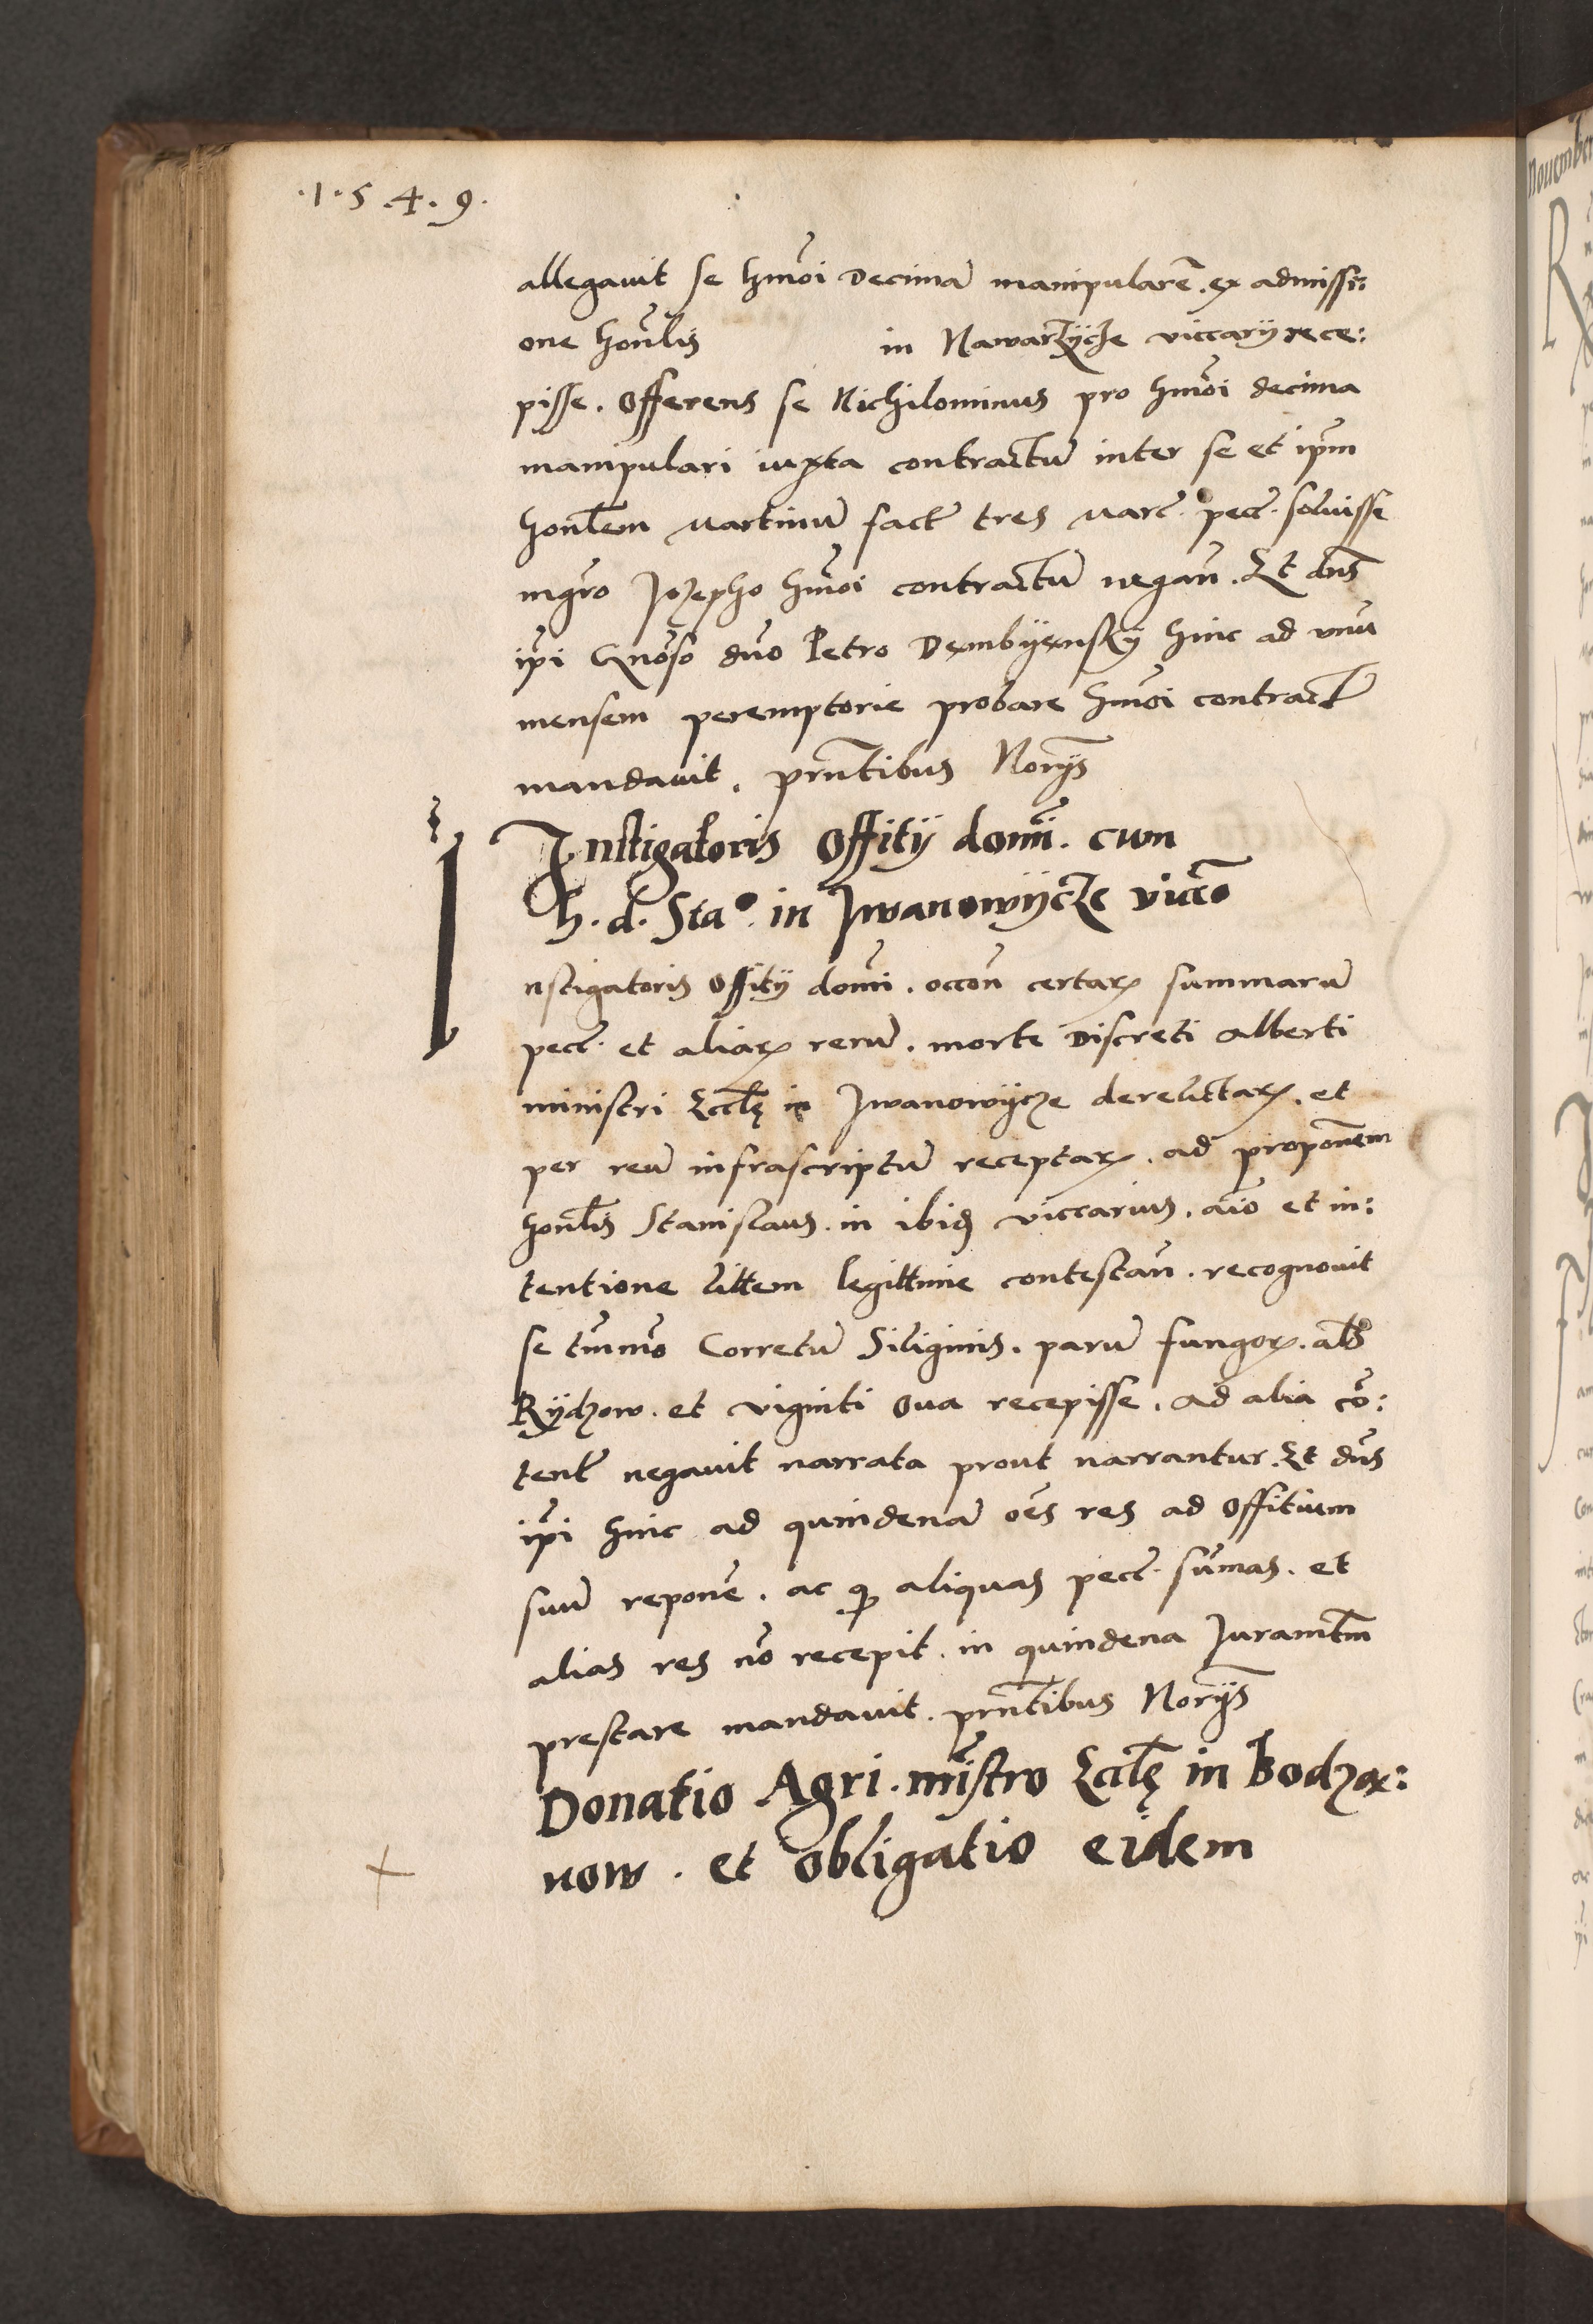 .1.5.4.9.
allegauit se hmõi Decimã manipularẽ. ex admissi:
one honᷓlis in Nawarzÿcze viccarÿ rece:
pisse. Offerens se Nichilominus pro hmõi decima
manipulari iuxta contractũ inter se et ipᷓm
honᷓlem Martinũ factᷓ tres marc̃. pecc̃. soluisse
mgr̃o Jozepho hmõi contractũ negan̄. Et dnᷓs
ipᷓi Gnõso dnᷓo Petro Dembÿenskÿ hinc ad vnũ
mensem peremptorie probare hmõi contractᷓ
mandauit. pñtibus Norÿs̃
Instigatoris Offitÿ domᷓi. cum
h. d. Staᵒ. in Jwanowÿcze vicc̃o
Instigatoris Offitÿ domᷓi. occon̄ certaꝝ summarũ
pecc̃. et aliaꝝ rerũ. morte Discreti Alberti
ministri Eccl̃ę in Jwanowÿcze derelictaꝝ. et
per reũ infrascriptũ receptaꝝ. ad propon̄em
honᷓlis Stanislaus. in ibid̃ viccarius. aĩo et in:
tentione littem legittimie contestan̄. recognouit
se tm̃mõ Corretũ Siliginis. parũ fungoꝝ. al̃s
Rÿdzow. et viginti Oua recepisse. Ad alia cõ:
tentᷓ negauit narrata prout narrantur. Et dnᷓs
ipᷓi hinc ad quindenã oẽs res ad Offitium
suũ reponẽ. ac ꝙ aliquas pecc̃. sũmas. et
alias res nõ recepit. in quindena Juramᷓtm
prestare mandauit. pñtibus Norÿs̃
Donatio Agri. mĩstro Eccl̃ę in Bodza:
now. et obligatio eidem
Nouember